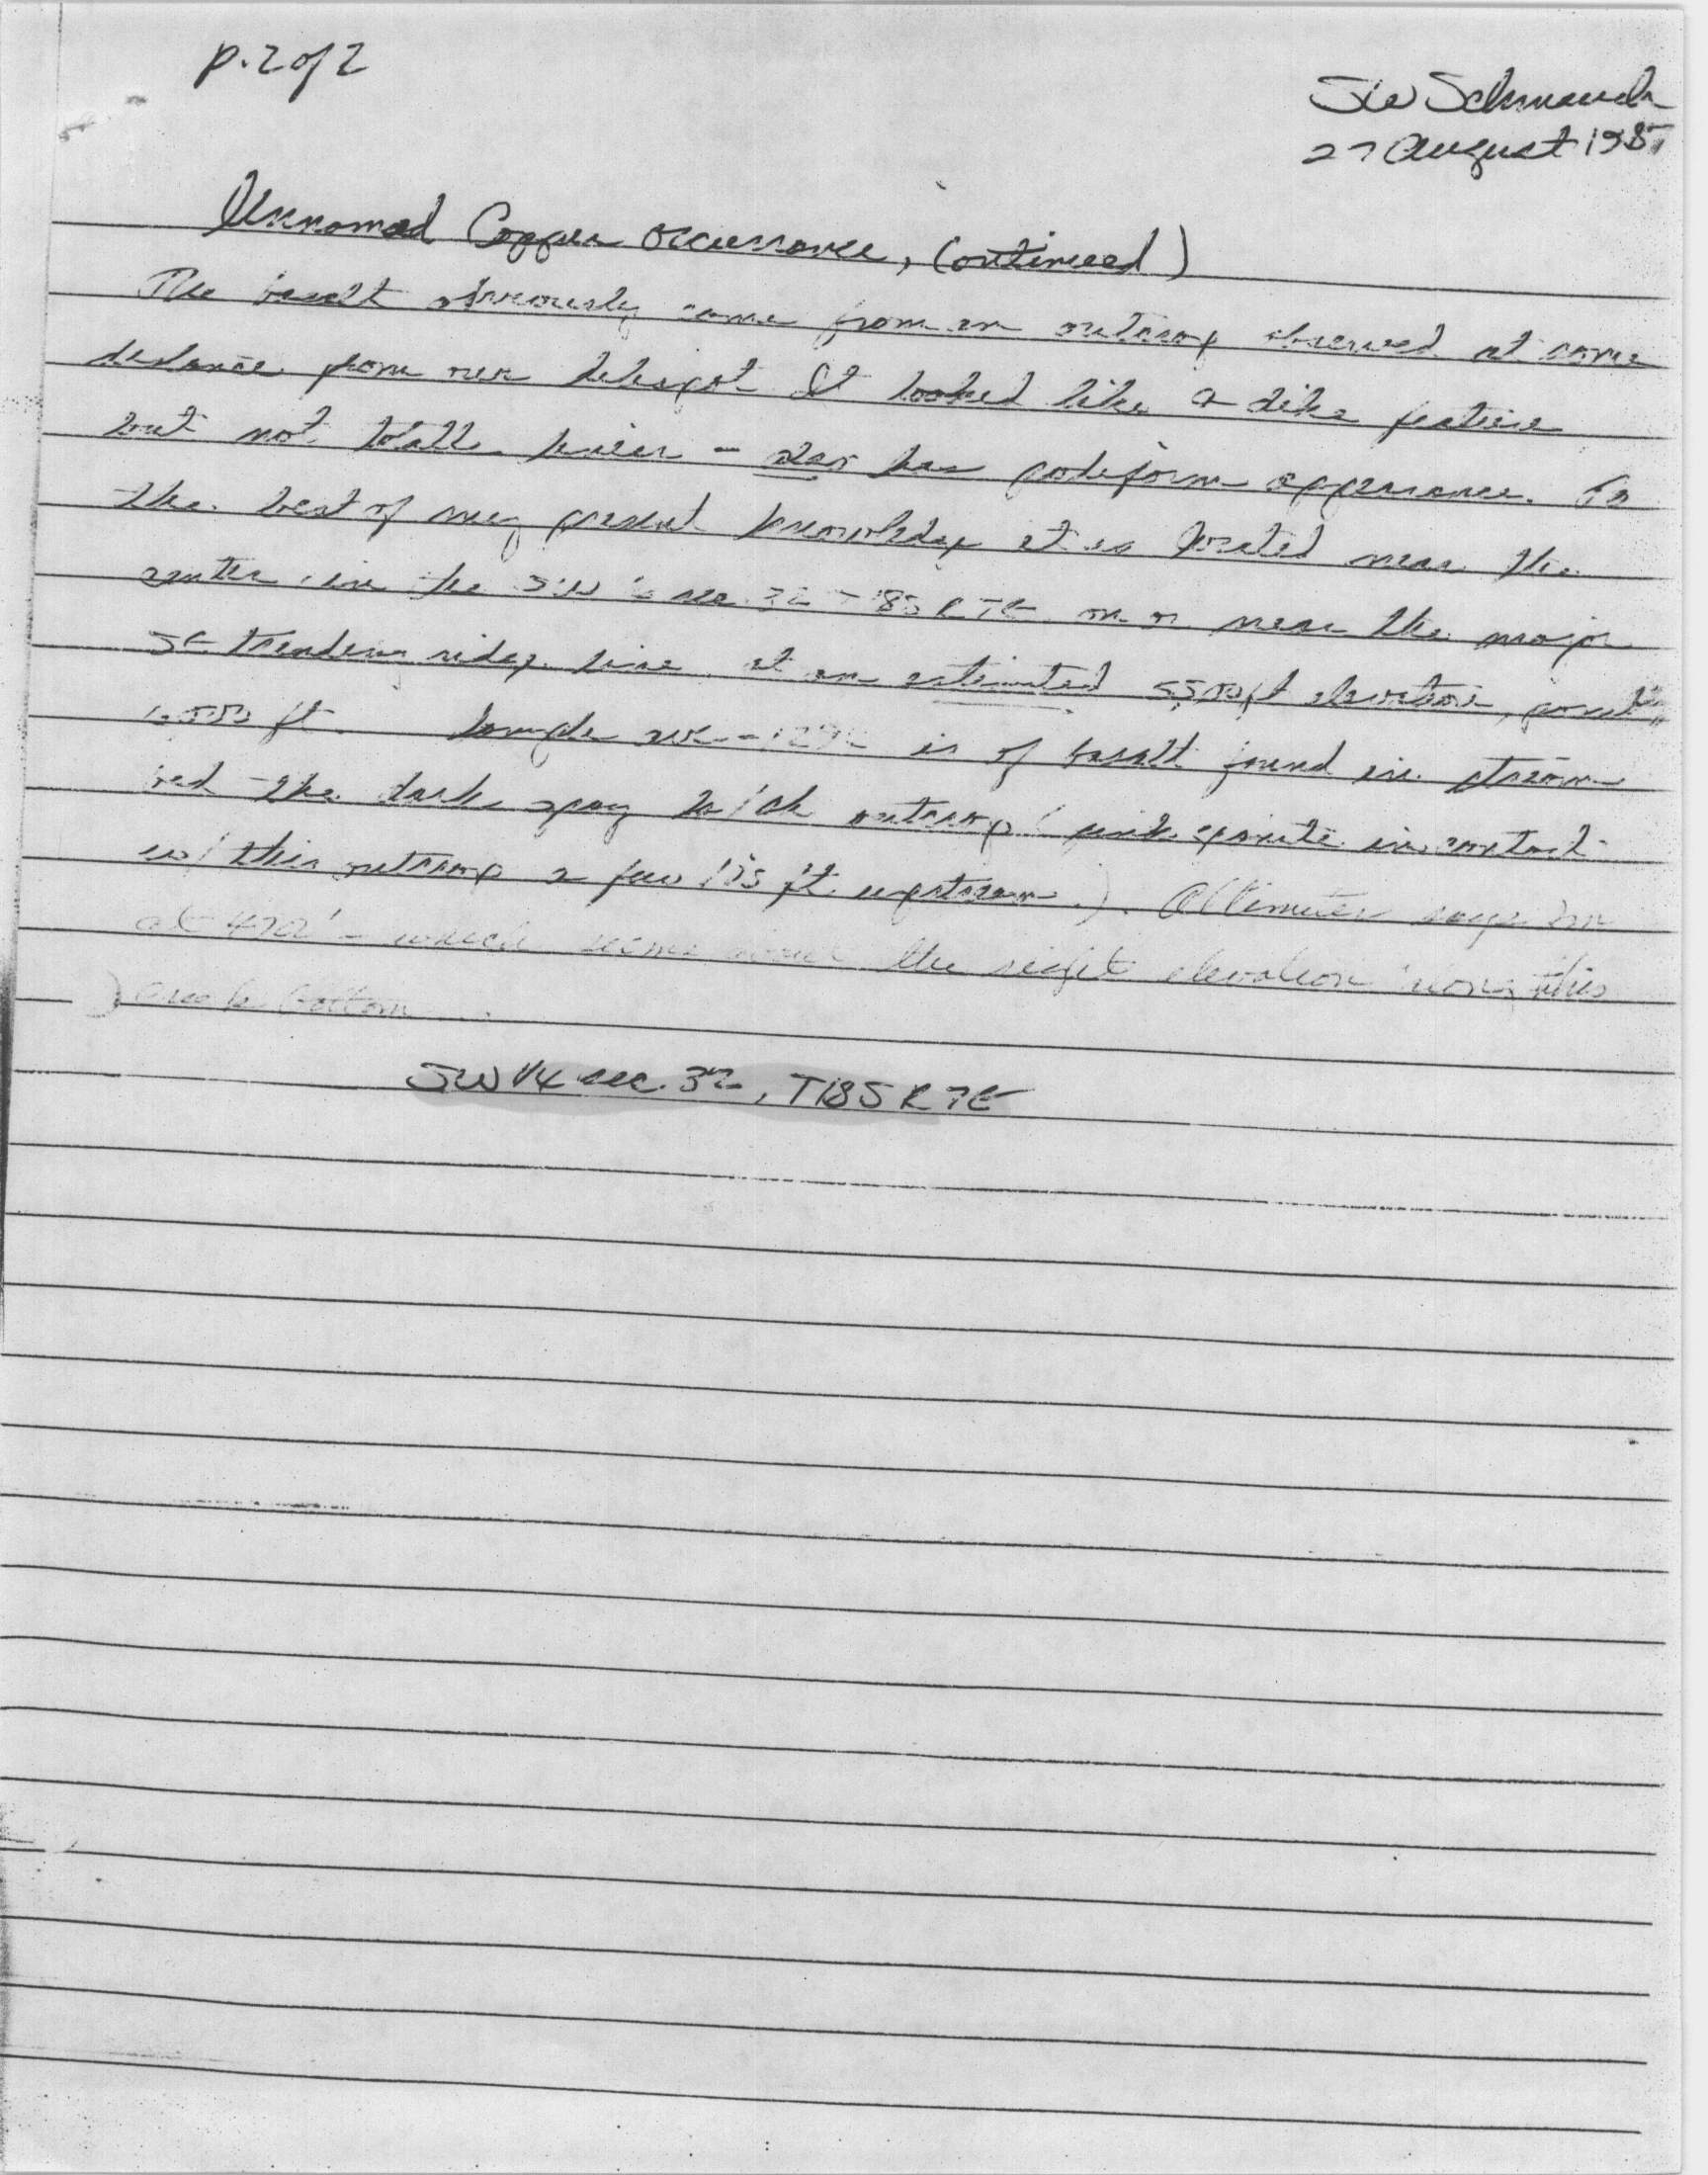 p. 2 of 2
SW Schmauch
27 August 198
Unnamed Copper Occurrance, (continued)
The basalt obviously came from an outcrop observed at some
distance from our helispot It looked like a dike feature
but not totall linear - also has podiform appearance. To
the best of my present knowledge it is located near the
center in the SW sec 32 T18S R7E on or near the major
SE trending ridge line at an estimated 5500 ft elevation,
ft. Sample is of basalt found in stream
bed the dark gray outcrop (pink granite in contact
w/ this outcrop a few 10's ft. upstream.). Altimeter says I'm
at which seems about the right elevation along this
creek bottom
SW 1/4 sec. 32, T18S R7E